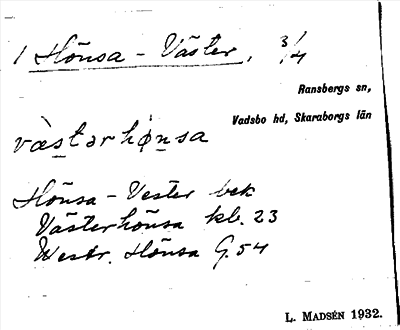 1 Hönsa - Väster, 3/4
Ransbergs sn,
Vadsbo hd, Skaraborgs län
væ̀stərhø̀nsa
Hönsa - Vester bek
Västerhönsa kb. 23
Westr. Hönsa G. 54
L. MADSÉN 1932.